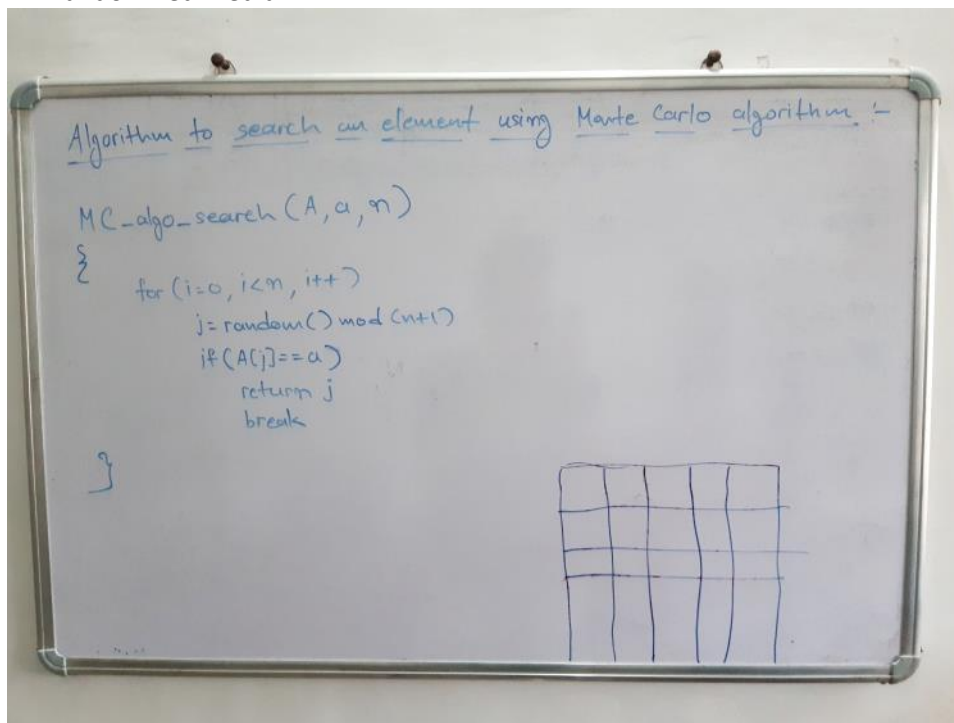 Algorithm to search an element using Monte Carlo algorithm :-
MC_algo_search (A, a, n)
{
for (i=0, i<n, i++)
j = random() mod (n+1)
if (A[j] == a)
return j
break
}